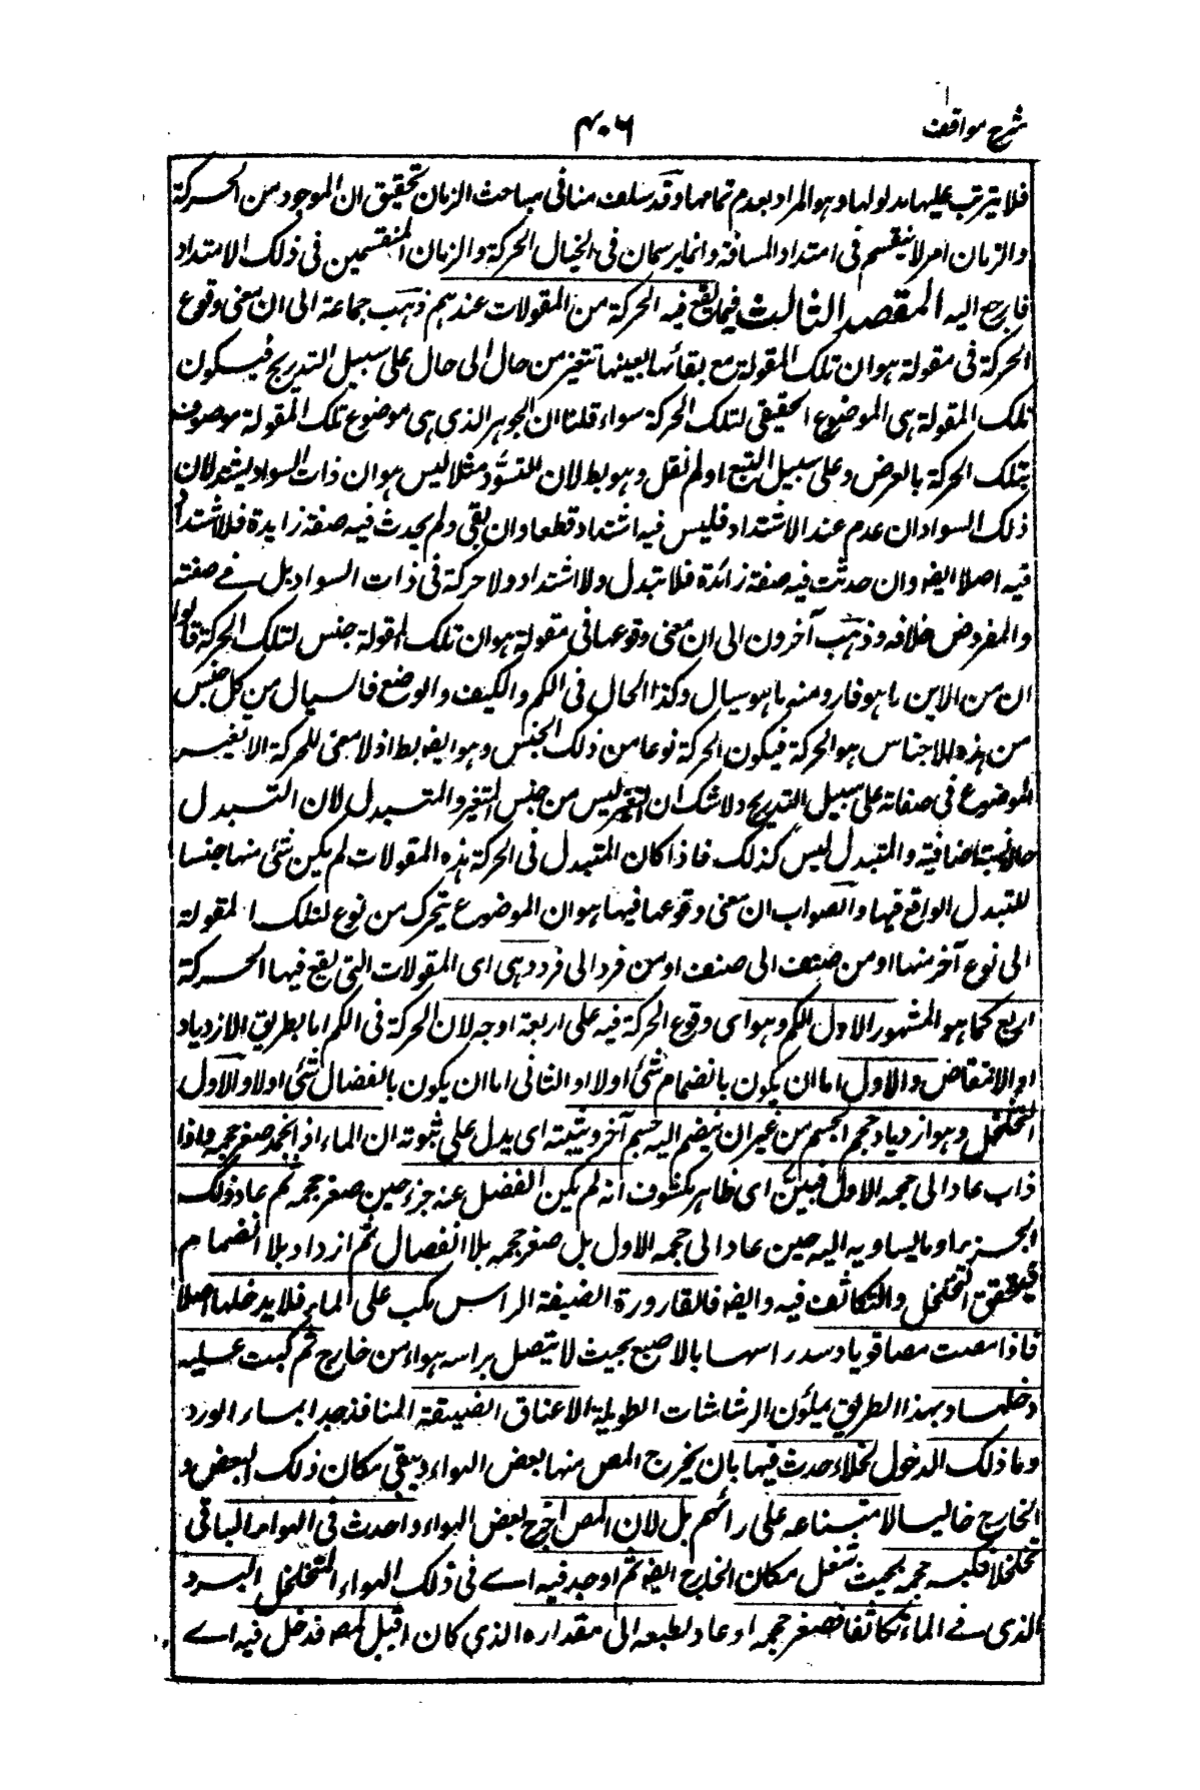 شرح مواقف
۴۰۶
فلا يترتب عليها مدلولها وهو المراد بعدم تمامها وقد سلف منا فى مباحث الزمان تحقيق ان الموجود من الحركة
والزمان امر لا ينقسم فى امتداد المسافة وانما يرسمان فى الخيال الحركة والزمان المنقسمين فى ذلك الامتداد
فارجع اليه المقصد الثالث فيما يقع فيه الحركة من المقولات عندهم ذهب جماعة الى ان معنى وقوع
الحركة فى مقولة هو ان تلك المقولة مع بقائها بعينها تتغير من حال الى حال على سبيل التدريج فيكون
تلك المقولة هى الموضوع الحقيقى لتلك الحركة سواء قلنا ان الجوهر الذى هى موضوع تلك المقولة موصوف
بتلك الحركة بالعرض وعلى سبيل التبع او لم نقل وهو بط لان التسود مثلا ليس هو ان ذات السواد يشتد لان
ذلك السواد ان عدم عند الاشتداد فليس فيه اشتداد قطعا وان بقى ولم يحدث فيه صفة زايدة فلا اشتداد
فيه اصلا ايضه وان حدثت فيه صفة زائدة فلا تبدل ولا اشتداد ولا حركة فى ذات السواد بل فے صفته
والمفروض خلافه وذهب آخرون الى ان معنى وقوعها فى مقولة هو ان تلك المقولة جنس لتلك الحركة قالوا
ان من الاين ما هو قار ومنه ما هو سيال وكذا الحال فى الكم والكيف والوضع فالسيال من كل جنس
من هذه الاجناس هو الحركة فيكون الحركة نوعا من ذلك الجنس وهو ايضه بط اذ لا معنى للحركة الا تغير
الموضوع فى صفاته على سبيل التدريج ولا شك ان التغير ليس من جنس المتغير والمتبدل لان التبدل
حالة نسبية اضافية والمتبدل ليس كذلك فاذا كان المتبدل فى الحركة هذه المقولات لم يكن شئ منها جنسا
للتبدل الواقع فيها والصواب ان معنى وقوعها فيها هو ان الموضوع يتحرك من نوع لتلك المقولة
الى نوع آخر منها او من صنف الى صنف او من فرد الى فرد وهى اى المقولات التى يقع فيها الحركة
اربع كما هو المشهور الاول الكم وهو اى وقوع الحركة فيه على اربعة اوجه لان الحركة فى الكم اما بطريق الازدياد
او الانتقاص والاول اما ان يكون بانضمام شئ اولا والثانى اما ان يكون بانفصال شئ اولا والاول
التخلخل وهو ازدياد حجم الجسم من غير ان ينضم اليه جسم آخر ويثبته اى يدل على ثبوته ان الماء اذا انجمد صغر حجمه واذا
ذاب عاد الى حجمه الاول فبيّن اى ظاهر مكشوف انه لم يكن انفصل عنه جزء حين صغر حجمه ثم عاد ذلك
الجزء او ما يساويه اليه حين عاد الى حجمه الاول بل صغر حجمه بلا انفصال ثم ازداد بلا انضمام
فيتحقق التخلخل والتكاثف فيه وايضه فالقارورة الضيقة الراس تكب على الماء فلا يدخلها اصلا
فاذا مصت مصا قويا وسد راسها بالاصبع بحيث لا يتصل براسه هواء من خارج ثم كبت عليه
دخلها وبهذا الطريق يملئون الرشاشات الطويلة الاعناق الضيقة المنافذ جدا بماء الورد
وما ذلك الدخول لخلاء حدث فيها بان يخرج المص منها بعض الهواء ويبقى مكان ذلك البعض و
الخارج خاليا لامتناعه على رائهم بل لان المص اخرج بعض الهواء واحدث فى الهواء الباقى
تخلخلا فكبر حجمه بحيث شغل مكان الخارج ايضه ثم اوجد فيه اے فى ذلك الهواء المتخلخل البرد
الذى فے الماء تكاثفا فصغر حجمه او عاد بطبعه الى مقداره الذى كان قبل المص فدخل فيه اے